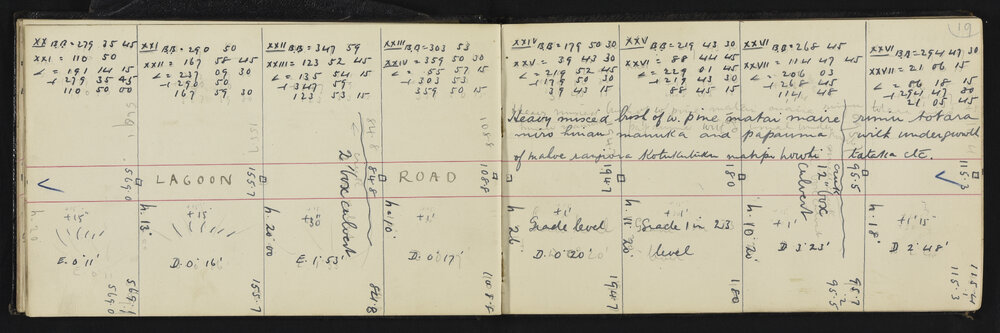 19
XX BB=279 35 45
XXI = 110 50
< = 191 14 15
+ 279 35 45
110 50 00
XXI BB=290 50
XXII = 167 58 45
< = 237 09 30
+ 290 50
167 59 30
XXII BB=347 59
XXIII = 123 52 45
< = 135 54 15
+ 347 59
123 53 15
XXIII BB=303 53
XXIV = 359 50 30
< = 55 57 15
+ 303 53
359 50 15
XXIV BB=179 50 30
XXV = 39 43 30
< = 219 52 45
+ 179 50 30
39 43 15
XXV BB=219 43 30
XXVI = 88 44 45
< = 229 01 45
+ 219 43 30
88 45 15
XXVI BB=268 45
XXVII = 114 47 45
< = 206 03
+ 268 45
114 48
XXVI BB=294 47 30
XXVII = 21 06 15
< = 86 18 15
+ 294 47 30
21 05 45
Heavy mixed bush of w. pine matai maire rimu totara
miro hinau manuka and papauma with undergrowth
of mahoe rangiora Kotukutuku mahipi houhi tataka etc.
569.0
LAGOON
155.7
84.8
2' box culvert
ROAD
108.8
194.7
180
95.5
creek
12" box
culvert
115.3
+15'
E. 0° 11'
569.1
569.0
h. 13'
+15'
D. 0° 16'
155.7
h. 20' 00
+30
E. 1° 53'
84.8
h. 10'
+1'
D. 0° 17'
108.8
h. 26
+1'
Grade level
D. 0° 20'
194.7
h. 11' 20'
Grade 1 in 23
level
180
h. 10' 20'
+1'
D 3° 23'
95.7
95.5
h. 18'
+1' 15'
D 2° 48'
115.3